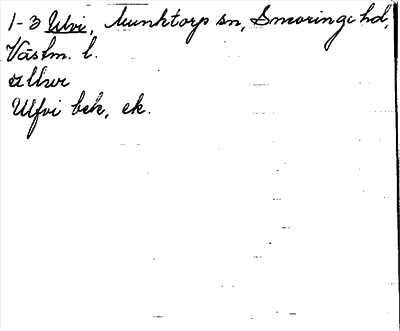 1-3 Ulvi, Munktorp sn, Snevringe hd,
Västm. l.
Ulfvi bek, ek.